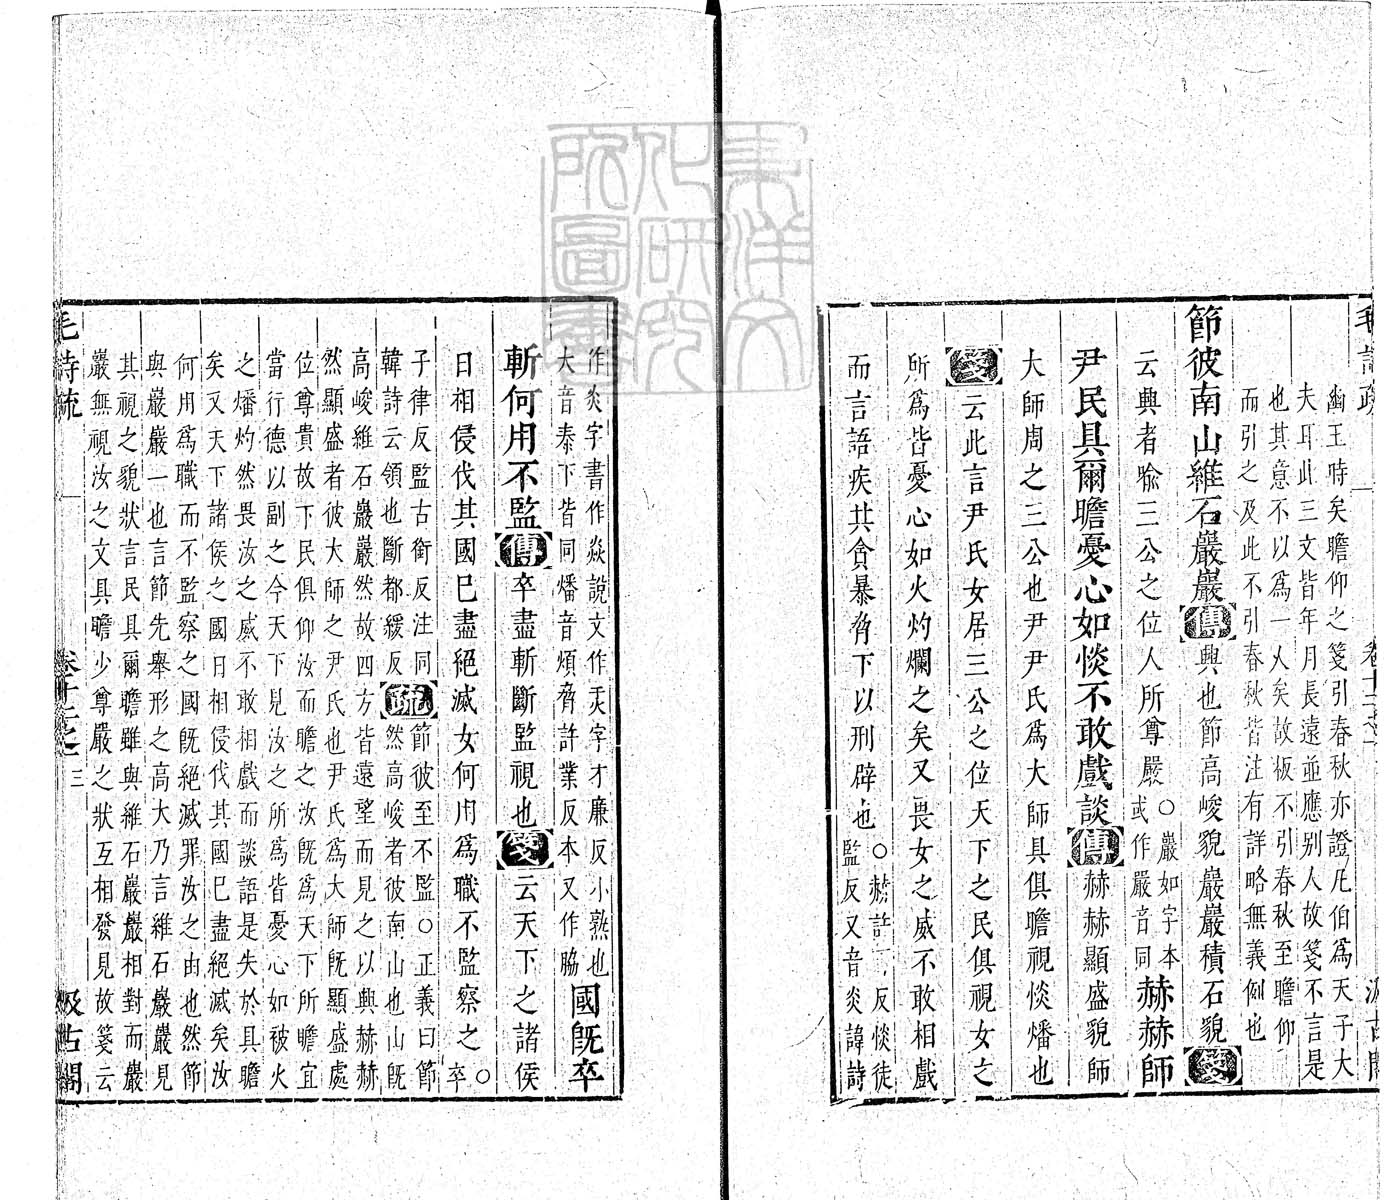 幽王時矣瞻仰之箋引春秋亦證凡伯爲天子大
夫耳此三文皆年月長遠並應别人故箋不言是
也其意不以爲一人矣故板不引春秋至瞻仰
而引之及此不引春秋皆注有詳略無義例也
節彼南山維石巖巖傳興也節高峻貌巖巖積石貌箋
云興者喻三公之位人所尊嚴○巖如字本或作嚴音同赫赫師
尹民具爾瞻憂心如惔不敢戲談傳赫赫顯盛貌師
大師周之三公也尹尹氏爲大師具俱瞻視惔燔也
箋云此言尹氏女居三公之位天下之民俱視女之
所爲皆憂心如火灼爛之矣又畏女之威不敢相戲
而言語疾其貪暴脅下以刑辟也○赫許反惔徒監反又音炎諱詩
作炎字書作焱說文作灻字才廉反小熟也
大音泰下皆同燔音煩脅許業反本又作脇國旣卒
斬何用不監傳卒盡斬斷監視也箋云天下之諸侯
日相侵伐其國巳盡絕滅女何用爲職不監察之○卒
子律反監古銜反注同
韓詩云領也斷都緩反疏節彼至不監○正義曰節
然高峻者彼南山也山旣
高峻維石巖巖然故四方皆遠望而見之以興赫赫
然顯盛者彼大師之尹氏也尹氏爲大師旣顯盛處
位尊貴故下民俱仰汝而瞻之汝旣爲天下所瞻宜
當行德以副之今天下見汝之所爲皆憂心如被火
之燔灼然畏汝之威不敢相戲而談語是失於具瞻
矣又天下諸侯之國日相侵伐其國巳盡絕滅矣汝
何用爲職而不監察之國旣絕滅罪汝之由也然節
與巖巖一也言節先舉形之高大乃言維石巖巖見
其視之貌狀言民具爾瞻雖與維石巖巖相對而巖
巖無視汝之文具瞻少尊嚴之狀互相發見故箋云
毛詩疏
卷十二之一
三
汲古閣